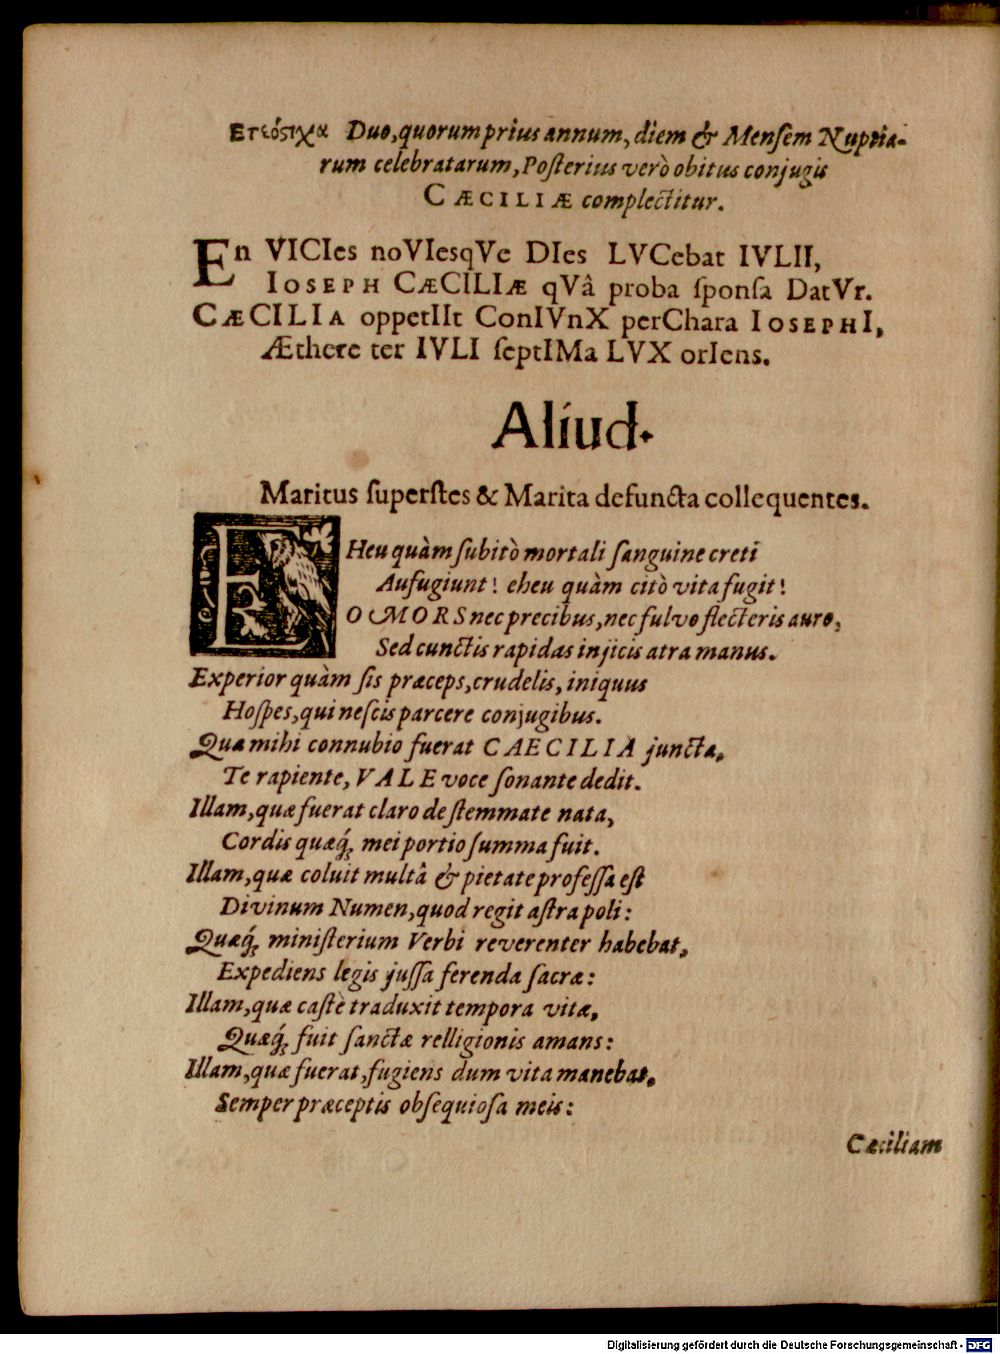 Ετεόςιχα Duo, quorum prius annum, diem & Mensem Nuptia-
rum celebratarum, Posterius verò obitus conjugis
CÆCILIÆ complectitur.
En VICIes noVIesqVe DIes LVCebat IVLII,
IOSEPH CÆCILIÆ qVâ proba ſponſa DatVr.
CÆCILIA oppetIIt ConIVnX perChara IOSEPHI,
Æthere ter IVLI ſeptIMa LVX orIens.
Aliud.
Maritus ſuperſtes & Marita defuncta collequentes.
EHeu quàm ſubitò mortali ſanguine creti
Aufugiunt! eheu quàm citò vita fugit!
O MORS nec precibus, nec fulvo flecteris auro,
Sed cunctis rapidas injicis atra manus.
Experior quàm ſis præceps, crudelis, iniquus
Hoſpes, qui neſcis parcere conjugibus.
Quæ mihi connubio fuerat CAECILIA juncta,
Te rapiente, VALE voce ſonante dedit.
Illam, quæ fuerat claro de ſtemmate nata,
Cordis quæq́ꝫ mei portio ſumma fuit.
Illam, quæ coluit multâ & pietate profeſſa eſt
Divinum Numen, quod regit aſtra poli:
Quæq́ꝫ miniſterium Verbi reverenter habebat,
Expediens legis juſſa ferenda ſacræ:
Illam, quæ caſtè traduxit tempora vitæ,
Quæq́ꝫ fuit ſanctæ relligionis amans:
Illam, quæ fuerat, fugiens dum vita manebat,
Semper præceptis obſequioſa meis:
Cæciliam
Digitalisierung gefördert durch die Deutsche Forschungsgemeinschaft - DFG